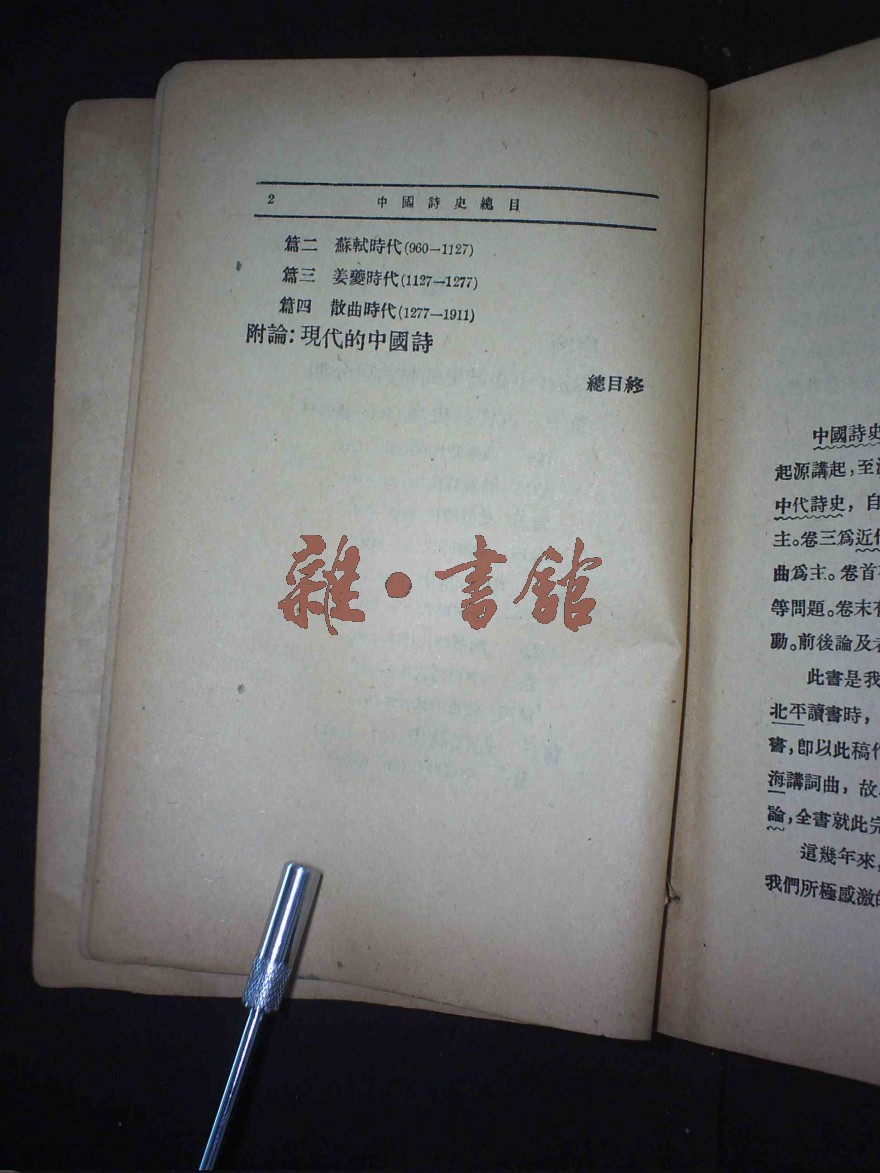 2 中國詩史總目
篇二 蘇軾時代(960—1127)
篇三 姜夔時代(1127—1277)
篇四 散曲時代(1277—1911)
附論:現代的中國詩
總目終
雜·書館
中國詩史
起源講起,至
中代詩史,自
主。卷三爲近
曲爲主。卷首
等問題。卷末
動。前後論及
此書是我
北平讀書時,
書,卽以此稿
海講詞曲,故
論,全書就此完
這幾年來,
我們所極感激